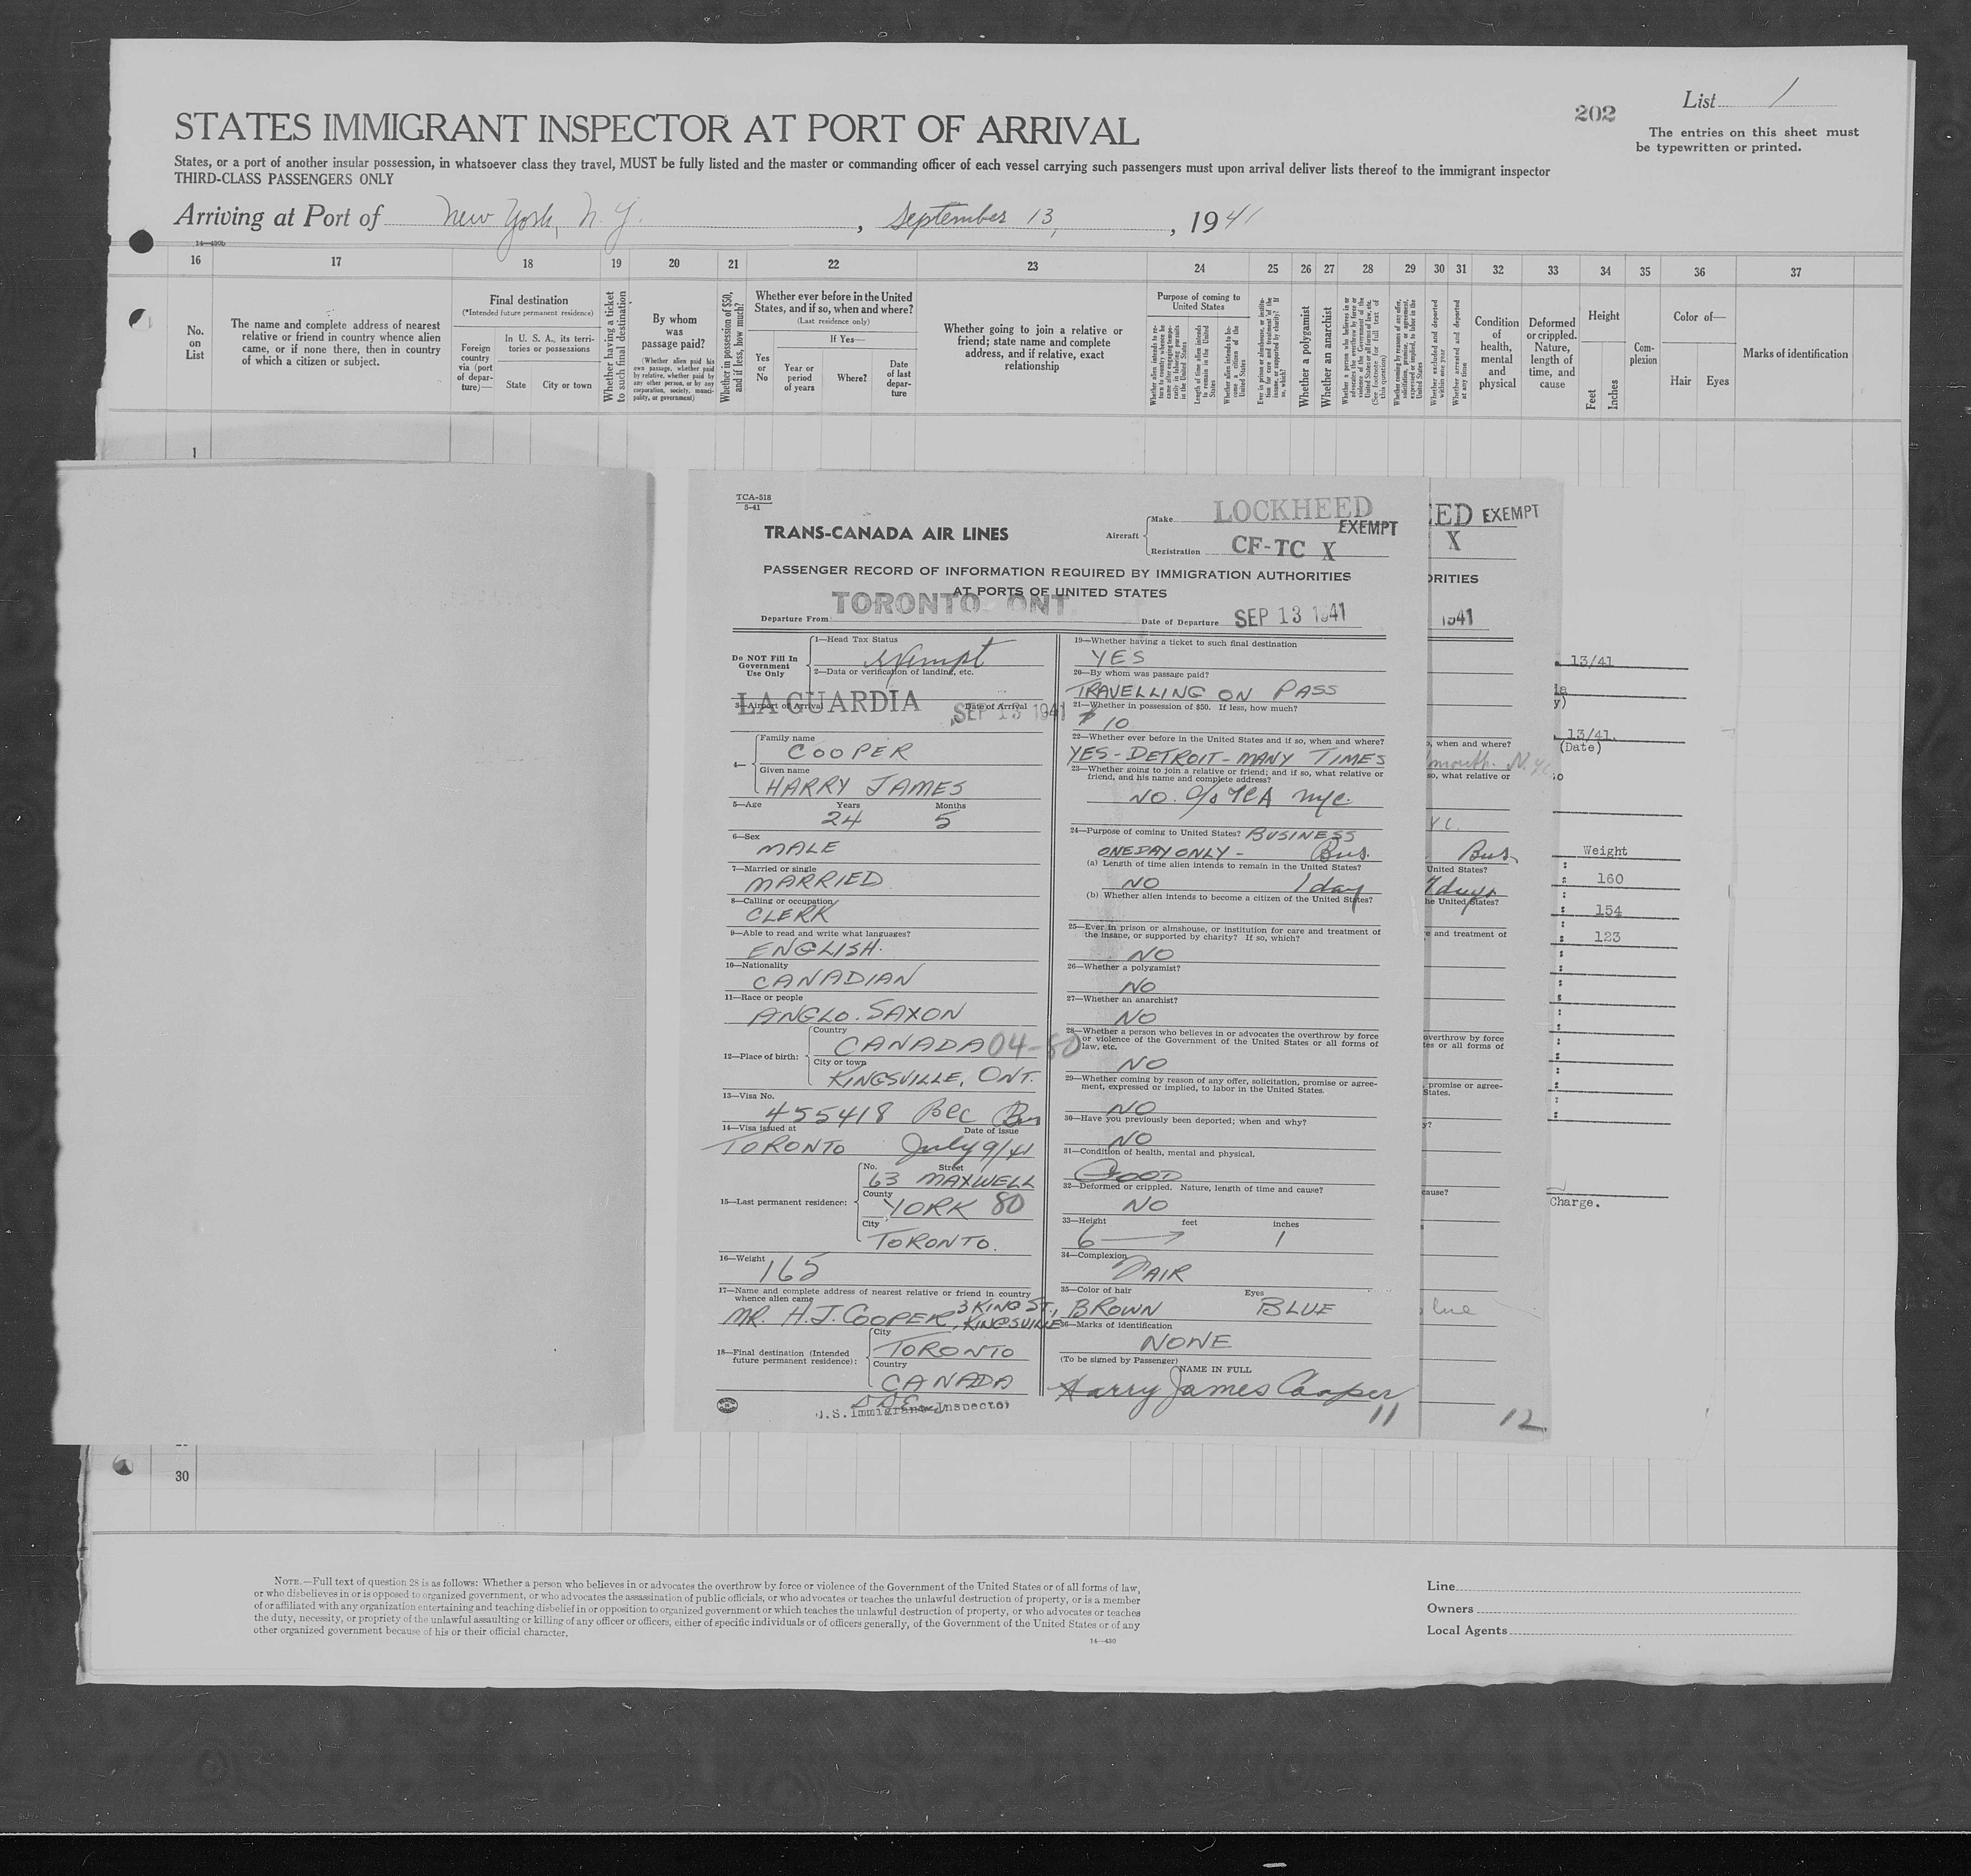 List 1
202
The entries on this sheet must
be typewritten or printed.
STATES IMMIGRANT INSPECTOR AT PORT OF ARRIVAL
States, or a port of another insular possession, in whatsoever class they travel, MUST be fully listed and the master or commanding officer of each vessel carrying such passengers must upon arrival deliver lists thereof to the immigrant inspector
THIRD-CLASS PASSENGERS ONLY
Arriving at Port of New York, N. Y., September 13, 1941
14—430b
16 17 18 19 20 21 22 23 24 25 26 27 28 29 30 31 32 33 34 35 36 37
No.
on
List
The name and complete address of nearest
relative or friend in country whence alien
came, or if none there, then in country
of which a citizen or subject.
Final destination
(*Intended future permanent residence)
Foreign
country
via (port
of depar-
ture)—
In U. S. A., its terri-
tories or possessions
State City or town
Whether having a ticket
to such final destination
By whom
was
passage paid?
(Whether alien paid his
own passage, whether paid
by relative, whether paid by
any other person, or by any
corporation, society, munici-
pality, or government)
Whether in possession of $50,
and if less, how much?
Whether ever before in the United
States, and if so, when and where?
(Last residence only)
If Yes—
Yes
or
No
Year or
period
of years
Where?
Date
of last
depar-
ture
Whether going to join a relative or
friend; state name and complete
address, and if relative, exact
relationship
Purpose of coming to
United States
Length of time alien intends
to remain in the United
States
Whether alien intends to be-
come a citizen of the
United States
Whether a polygamist
Whether an anarchist
Whether excluded and deported
within one year
Whether arrested and deported
at any time
Condition
of
health,
mental
and
physical
Deformed
or crippled.
Nature,
length of
time, and
cause
Height
Feet
Inches
Com-
plexion
Color of—
Hair Eyes
Marks of identification
1
TCA-518
5-41
TRANS-CANADA AIR LINES
Aircraft
Make LOCKHEED
EXEMPT
Registration CF-TC X
PASSENGER RECORD OF INFORMATION REQUIRED BY IMMIGRATION AUTHORITIES
AT PORTS OF UNITED STATES
Departure From TORONTO ONT.
Date of Departure SEP 13 1941
Do NOT Fill In
Government
Use Only
1—Head Tax Status
exempt
2—Data or verification of landing, etc.
3—Airport of Arrival LA GUARDIA
Date of Arrival SEP 13 1941
4—
Family name
COOPER
Given name
HARRY JAMES
5—Age Years Months
24 5
6—Sex
MALE
7—Married or single
MARRIED
8—Calling or occupation
CLERK
9—Able to read and write what languages?
ENGLISH.
10—Nationality
CANADIAN
11—Race or people
ANGLO. SAXON
12—Place of birth:
Country
CANADA 04-80
City or town
KINGSVILLE, ONT.
13—Visa No.
455418 BCC Bus
14—Visa issued at Date of issue
TORONTO July 9/41
15—Last permanent residence:
No. Street
63 MAXWELL
County
YORK 80
City
TORONTO.
16—Weight
165
17—Name and complete address of nearest relative or friend in country
whence alien came
MR. H.J. COOPER, 3 KING ST., KINGSVILLE
18—Final destination (Intended
future permanent residence):
City
TORONTO
Country
CANADA
U.S. Immigrant Inspector
19—Whether having a ticket to such final destination
YES
20—By whom was passage paid?
TRAVELLING ON PASS
21—Whether in possession of $50. If less, how much?
$ 10
22—Whether ever before in the United States and if so, when and where?
YES - DETROIT - MANY TIMES
23—Whether going to join a relative or friend; and if so, what relative or
friend, and his name and complete address?
NO. c/o TCA NYC.
24—Purpose of coming to United States? BUSINESS
ONE DAY ONLY - Bus.
(a) Length of time alien intends to remain in the United States?
NO 1 day
(b) Whether alien intends to become a citizen of the United States?
25—Ever in prison or almshouse, or institution for care and treatment of
the insane, or supported by charity? If so, which?
NO
26—Whether a polygamist?
NO
27—Whether an anarchist?
NO
28—Whether a person who believes in or advocates the overthrow by force
or violence of the Government of the United States or all forms of
law, etc.
NO
29—Whether coming by reason of any offer, solicitation, promise or agree-
ment, expressed or implied, to labor in the United States.
NO
30—Have you previously been deported; when and why?
NO
31—Condition of health, mental and physical.
GOOD
32—Deformed or crippled. Nature, length of time and cause?
NO
33—Height feet inches
6 1
34—Complexion
FAIR
35—Color of hair Eyes
BROWN BLUE
36—Marks of identification
NONE
(To be signed by Passenger)
NAME IN FULL
Harry James Cooper
11
EED EXEMPT
X
ORITIES
1941
, when and where?
so, what relative or
Bus.
United States?
7 days
he United States?
e and treatment of
overthrow by force
es or all forms of
, promise or agree-
States.
y?
cause?
lue
12
13/41
y)
13/41.
(Date)
Weight
: 160
: 154
: 123
Charge.
30
NOTE.—Full text of question 28 is as follows: Whether a person who believes in or advocates the overthrow by force or violence of the Government of the United States or of all forms of law,
or who disbelieves in or is opposed to organized government, or who advocates the assassination of public officials, or who advocates or teaches the unlawful destruction of property, or is a member
of or affiliated with any organization entertaining and teaching disbelief in or opposition to organized government or which teaches the unlawful destruction of property, or who advocates or teaches
the duty, necessity, or propriety of the unlawful assaulting or killing of any officer or officers, either of specific individuals or of officers generally, of the Government of the United States or of any
other organized government because of his or their official character.
14—430
Line
Owners
Local Agents